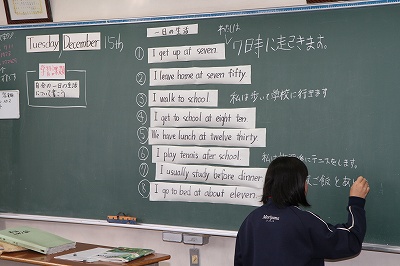 Tuesday December 15th
学習課題
自分の一日の生活
について書こう
一日の生活
わたしは
① I get up at seven. 7時に起きます。
② I leave home at seven fifty.
③ I walk to school. 私は歩いて学校に行きます
④ I get to school at eight ten.
⑤ We have lunch at twelve thirty.
⑥ I play tennis after school. 私は
にテニスをします。
⑦ I usually study before dinner
ご飯
⑧ I go to bed at about eleven.